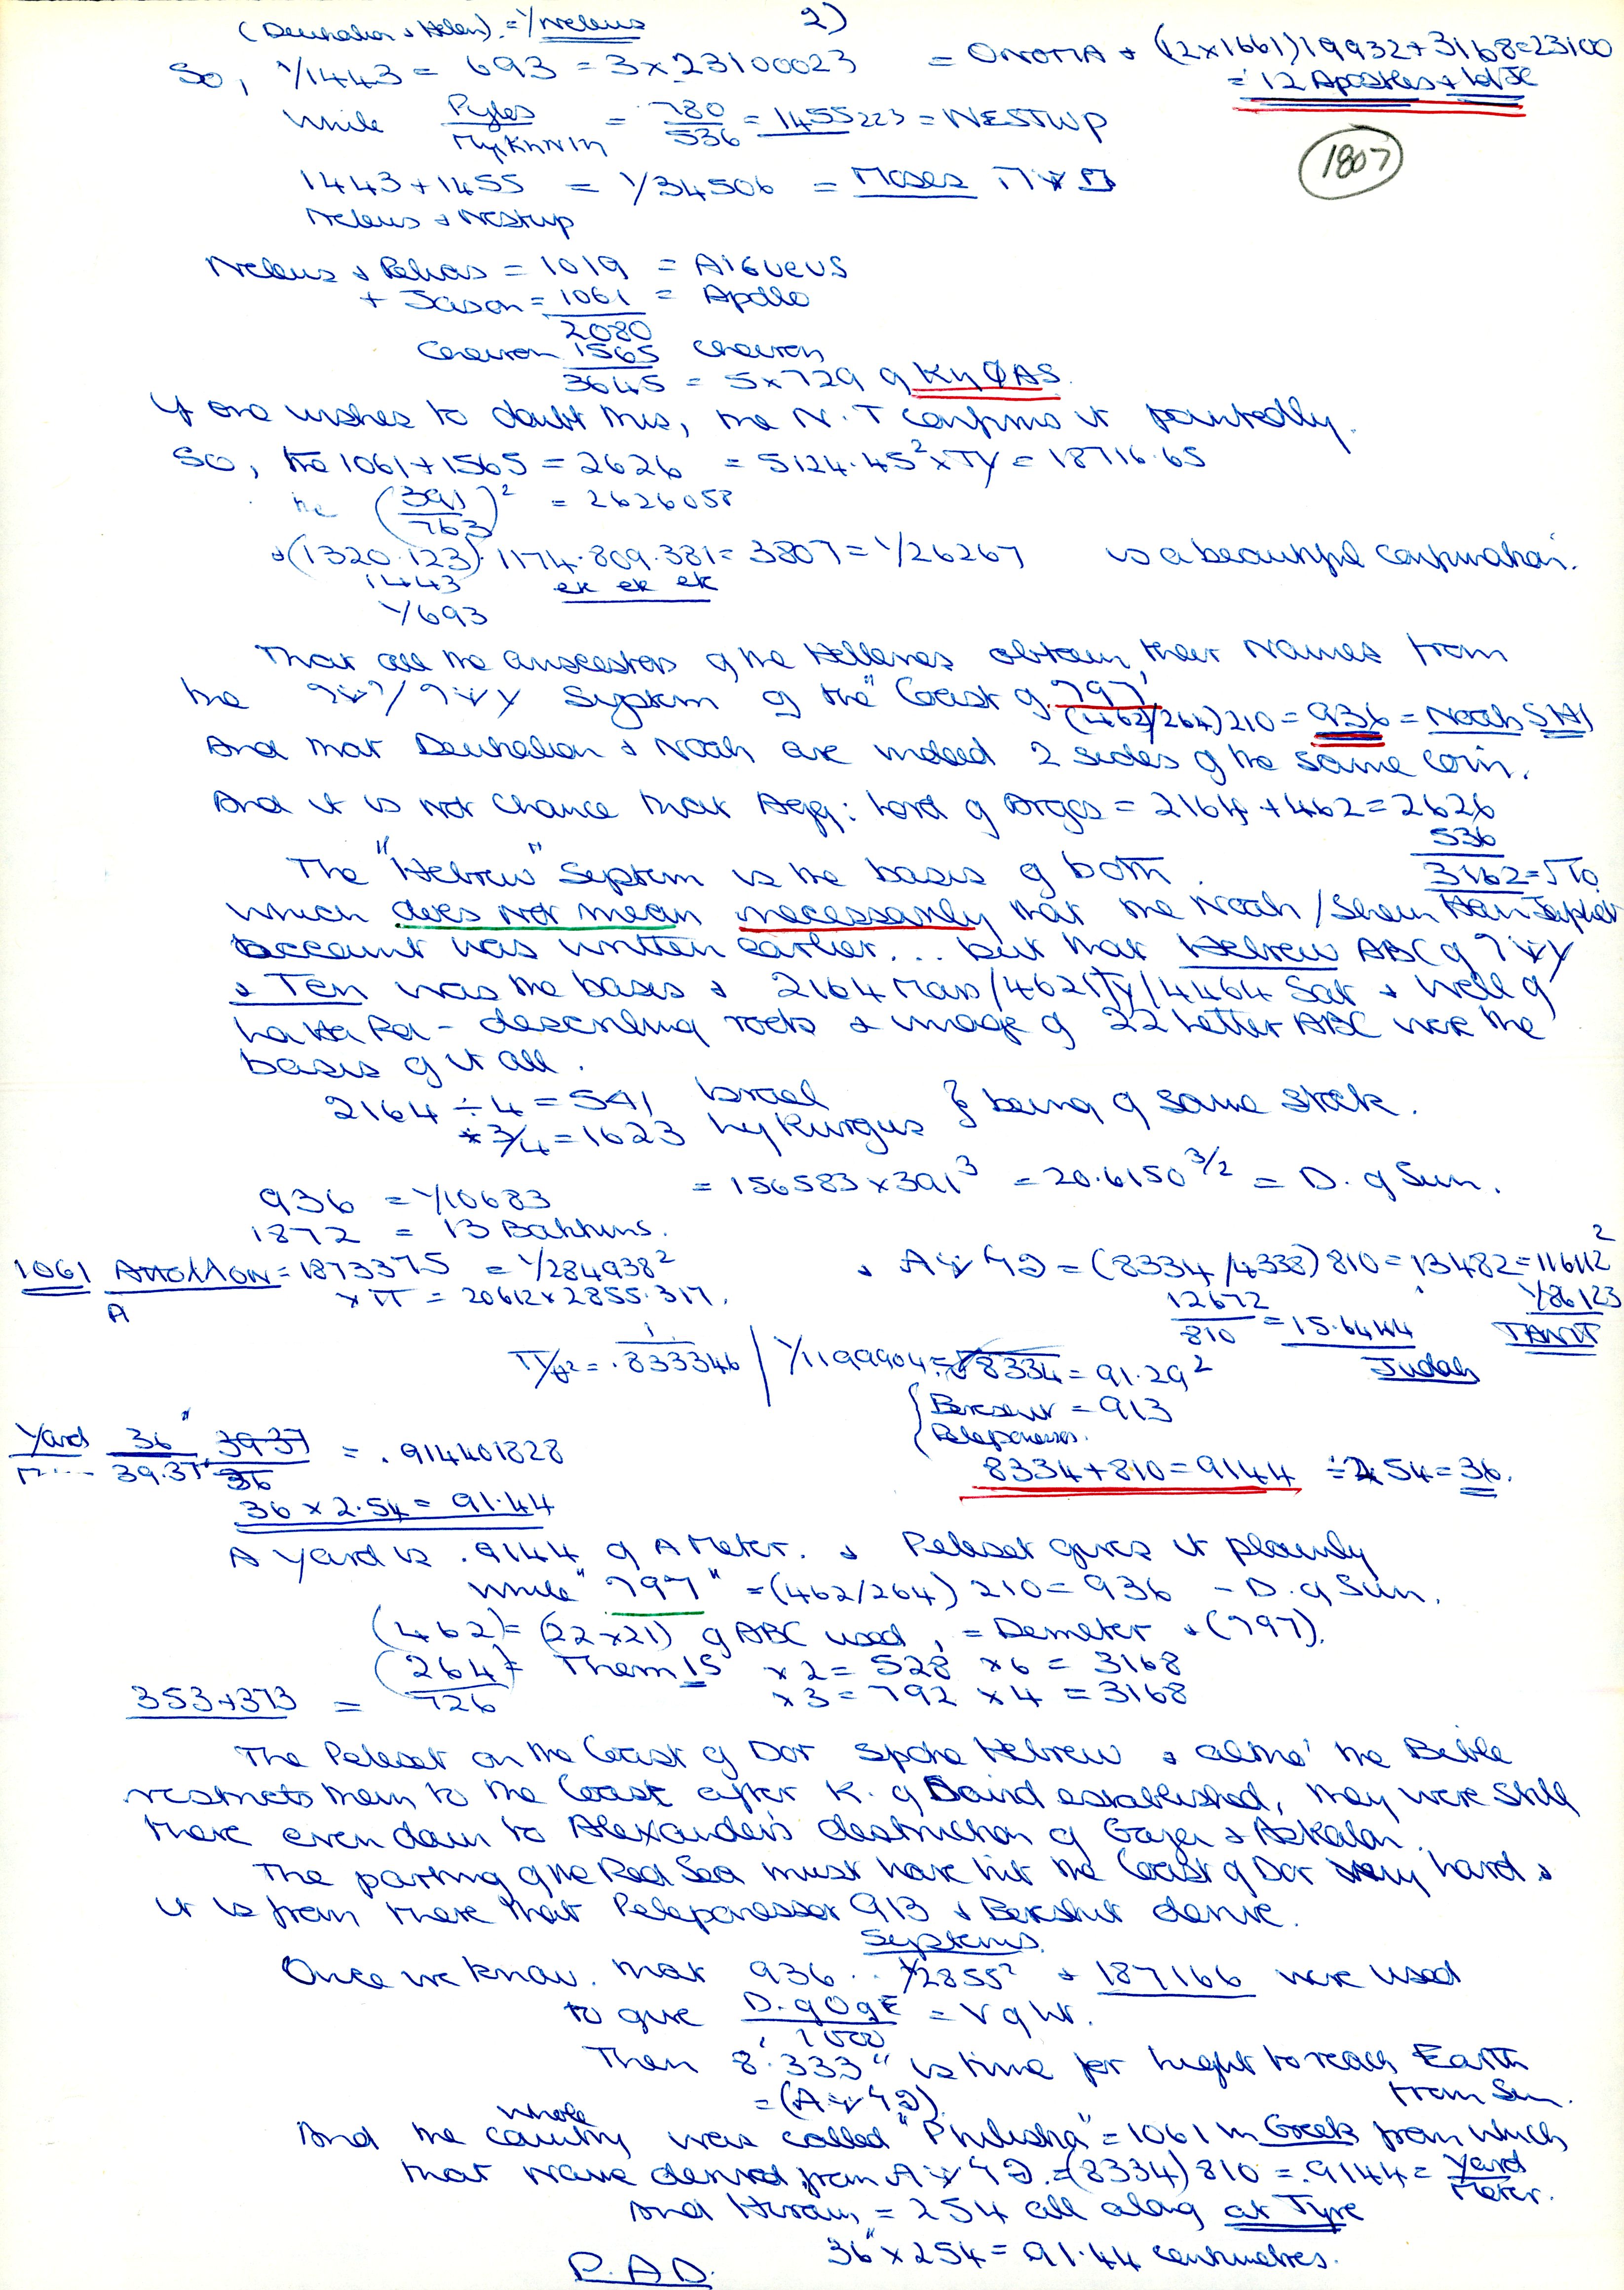 2)
(Deukalion + Helen) = 1/Neleus
So, 1/1443 = 693 = 3 x 23100023 = ONOMA + (12x1661) 19932 + 3168 = 23100
= 12 Apostles + Ld JC
While Pylos / MyKHNIN = 780/536 = 1455223 = NESTWP
1807
1443 + 1455 = 1/34506 = Moses
Neleus + Nestwp
Neleus + Pelias = 1019 = AIGUEUS
+ Jason = 1061 = Apollo
2080
Cheiron 1565 Cheiron
3645 = 5 x 729 of KHΦAS.
If one wishes to doubt this, the N.T confirms it pointedly.
So, the 1061 + 1565 = 2626 = 5124.45² x Jy = 18716.65
the (391/763)² = 2626058
+ (1320.123). 1174.809.381 = 3807 = 1/26267 is a beautiful confirmation.
1443 ek ek ek
1/693
That all the ancestors of the Hellenes obtain their Names from
the System of the "Coast of (462/264) 210 = 936 = Noah SHI
And that Deukalion & Noah are indeed 2 sides of the same coin.
And it is not chance that Agg: Lord of Argos = 2164 + 462 = 2626
536
The "Hebrew" System is the basis of both. 3162 = √10
which does not mean necessarily that the Noah / Shem Ham Japhet
account was written earlier... but that Hebrew ABC of
& Ten was the basis & 2164 Mars / 4621 Jy / 4464 Sat & Well of
La Ha Roi - describing roots & image of 22 letter ABC were the
basis of it all.
2164 ÷ 4 = 541 Israel
x 3/4 = 1623 LyKurgus } being of same stock.
936 = 1/10683 = 156583 x 391³ = 20.6150 3/2 = D. of Sun.
1872 = 13 Bakkhus.
1061 ΑΠΟΛΛΩΝ = 1873375 = 1/284938² + (8334/4338) 810 = 13482 = 116112²
A x π = 20612 x 2855.317. 12672/810 = 15.6444 1/86123
Judah TANIT
1/.833346 / 1/1199904 = 8334 = 91.29²
{ Beresheit = 913
Peloponessos.
Yard 36"/39.37 . 39.37/36 = .914401828
8334 + 810 = 9144 ÷ 254 = 36.
36 x 2.54 = 91.44
A yard is .9144 of A Meter. & Peleset gives it plainly
while " " = (462/264) 210 = 936 - D. of Sun.
(462) = (22x21) of ABC used, = Demeter
(264) = ThemIS x 2 = 528 x 6 = 3168
353 + 373 = 726 x 3 = 792 x 4 = 3168
The Peleset on the Coast of Dor spoke Hebrew & altho' the Bible
restricts them to the Coast after K. of David established, they were still
there even down to Alexander's destruction of Gaza & Askalon.
The parting of the Red Sea must have hit the Coast of Dor very hard &
it is from there that Peloponessos 913 & Beresheit derive.
Systems
Once we know. that 936.. 1/2855² + 187166 were used
to give D. of O of E / 1000 = V of Lt.
Then 8'.333" is time for Light to reach Earth
from Sun.
And the whole country was called "Philistia" = 1061 in Greek from which
that Name derived from = (8334) 810 = .9144 = Yard/Meter.
And Hiram = 254 all along at Tyre
36" x 254 = 91.44 centimetres.
P.A.D.